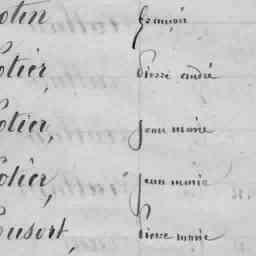 otin françois
otier, Pierre andré
otier, jean marie
otier, jean marie
ousort, Pierre marie